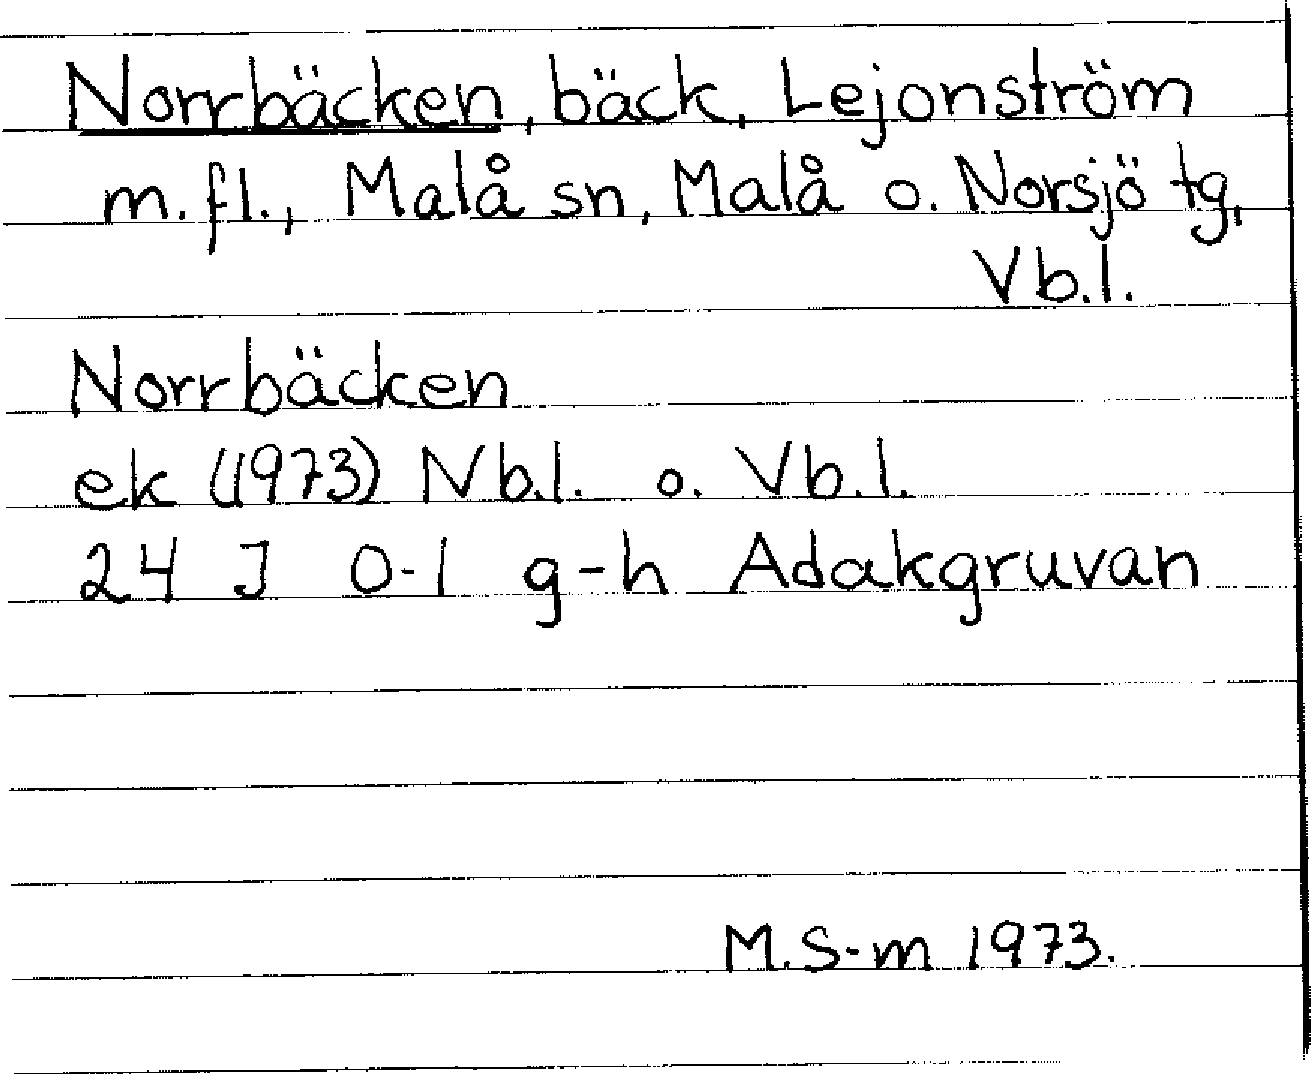 Norrbäcken, bäck, Lejonström
m.fl., Malå sn, Malå o. Norsjö tg,
Vb.l.
Norrbäcken
ek (1973) Nb.l. o. Vb.l.
24 J 0-1 g-h Adakgruvan
M.S-m 1973.